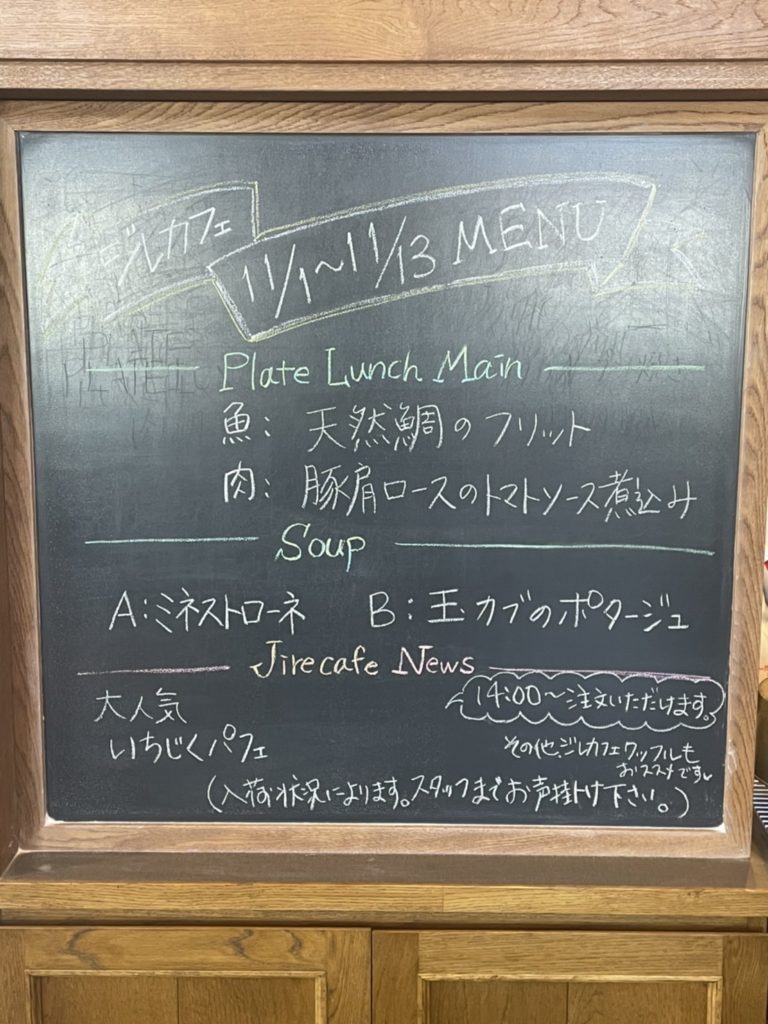 ジルカフェ
11/1〜11/13 MENU
Plate Lunch Main
魚: 天然鯛のフリット
肉: 豚肩ロースのトマトソース煮込み
Soup
A:ミネストローネ B:玉カブのポタージュ
Jirecafe News
大人気
いちじくパフェ
14:00〜注文いただけます。
その他、ジルカフェワッフルも
おススメです
(入荷状況によります。スタッフまでお声掛け下さい。)